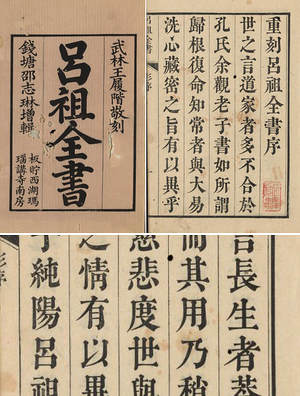 武林王履階敬刻
呂祖全書
錢塘邵志琳增輯
板貯西湖瑪
瑙講寺南房
重刻呂祖全書序
世之言道家者多不合於
孔氏余觀老子書如所謂
歸根復命知常者與大易
洗心藏密之旨有以異乎
呂祖全書
彭序
言長生者
而其用乃稍
慈悲度世與
之情有以異
乎純陽呂祖
彭序